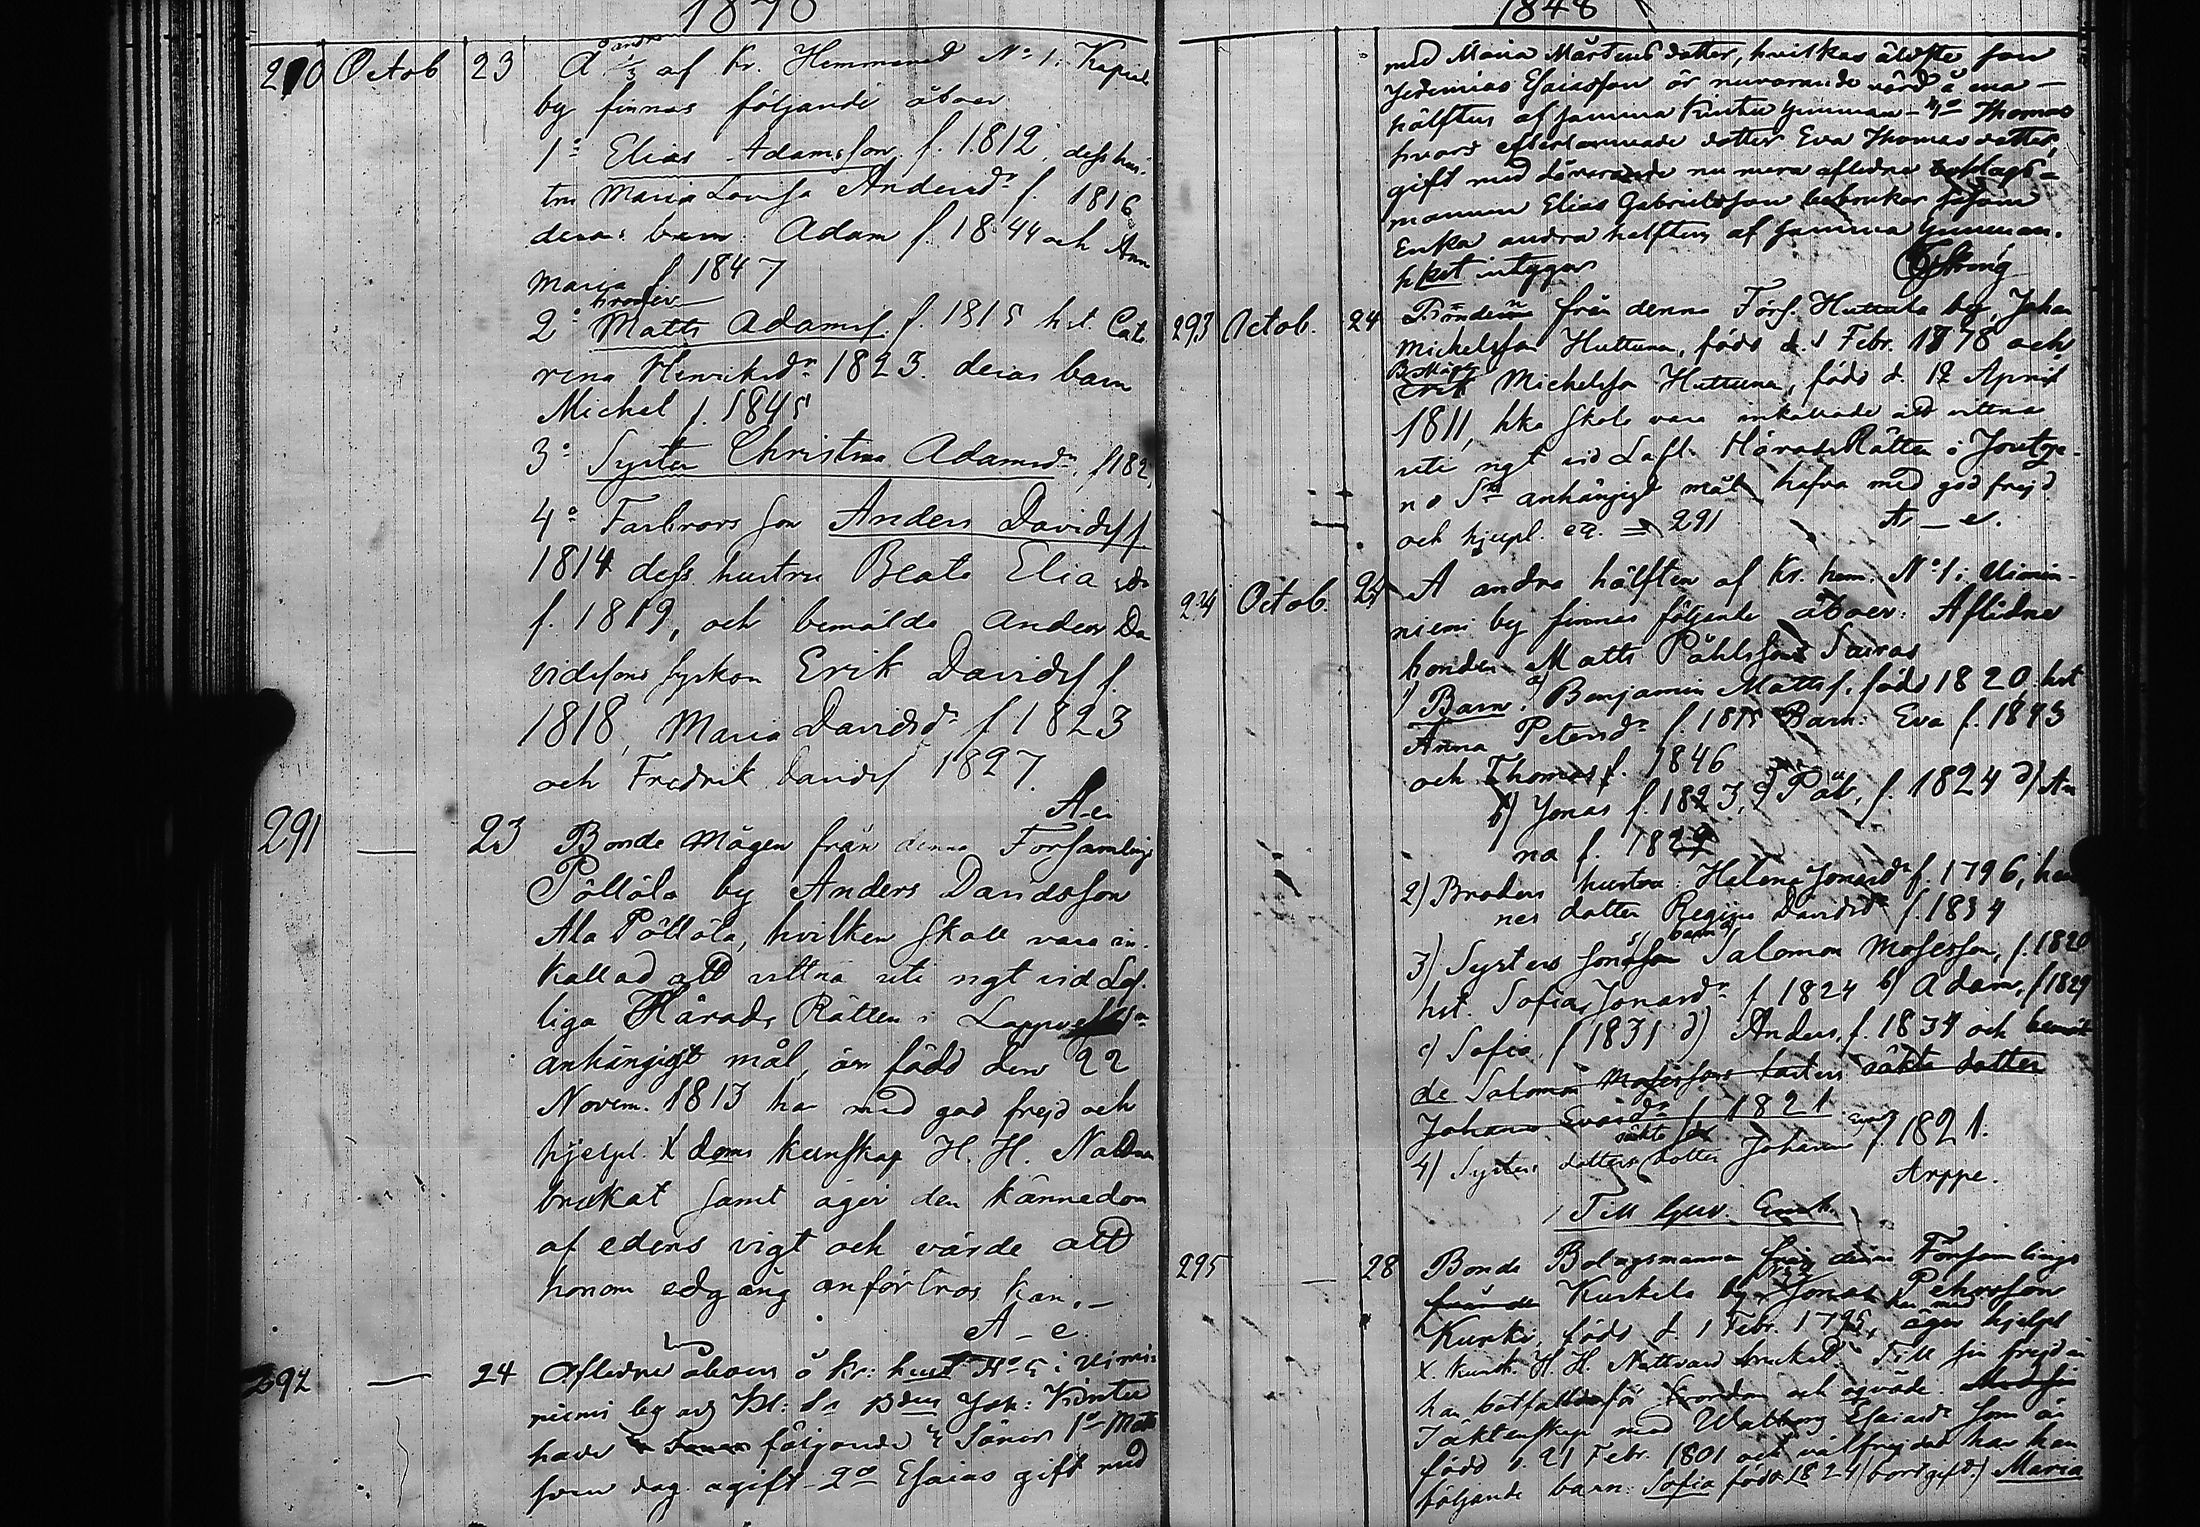 290 Octob 23 Å andra 1/3 af Kr. Hemmanet No 1. Kapala
by finnas följande åboer
1o Elias Adamsson f. 1812. dess hus-
tru Maria Lovisa Andersdr f. 1816
deras barn Adam f. 1844 och Ann
Maria f 1847
brodren
2o Matts Adamss. f. 1815 hst. Cat
rina Henriksdr 1823. deras barn
Michel f. 1845
3o Syster Christina Adamsdr, f 182
4o Farbrors son Anders Davidss f
1814 dess hustru Beata Elia sdr
f. 1819, och bemälde Anders Da
vidssons syskon Erik Davidss f.
1818, Maria Davidsdr f 1823
och Fredrik Davidss 1827.
A-e.
291 — 23 Bonde Mågen från denna Församlings
Pöllölä by Anders Davidsson
Ala Pöllölä, hvilken skall vara in-
kallad att vittna uti ngt vid Lof-
liga Härads Rätten i Lappves
anhängigt mål, är född den 22
Novem. 1813 har med god frejd och
hjelpl. X doms kunskap H. H. Nattvn
brukat samt äger den kännedom
af edens vigt och värde att
honom edgång anförtros kan. —
A — e.
292 — 24 Aflidne åboen å Kr: No 5 i Uimi-
niemi by Joh: Kintu
hade följande 4 Söner 1o Matts
som dog ogift — 2o Esaias gift med
1848
med Maria Mårtensdotter, hvilkas äldste son
Jeremias Esaiasson är nuvarande värd å ena —
hälften af samma Kintu hemman — 4o Thomas
hvars efterlemnade dotter Eva Thomasdotter,
gift med dåvarande nu mera aflidne bolags-
mannen Elias Gabrielsson bebrukar såsom
Enka andra helften af samma hemman.
hket intygar
293 Octob. 24 Bönderne från denna Förs. Huttula by, Johan
Michelsson Huttunen, född d 1 Febr. 1878 och
Erik Michelsson Huttunen, född d. 12 April
1811, hka skola vara inkallade att vittna
uti ngt vid Lofl. Härads Rätten i Joutse-
no Sn anhängigt mål, hafva med god frejd
och hjelpl. 291 A — e.
294 Octob. 24 A andra hälften af Kr. hem. No 1 i Uimin-
niemi by finnas följande åboer: Aflidne
bonden Matts Påhlsson
1) Barn: a) Benjamin Mattss. född 1820. hst
Anna Petersdr f. 1815 Barn: Eva f. 1843
och Thomas f. 1846
b) Jonas f. 1823, c) Påv. f. 1824 d) An
na f. 1829
2) Broders hustru: Helena Jonasdr f. 1796, hen
nes dotter Regina Davidsdr f 1834
3) Systers barn a) Salomon Mosesson, f. 1820
hst. Sofia Jonasdr f 1824 b) Adam, f 1829
c) Sofia, f 1831 d) Anders, f. 1834 och bemäl
de Salomon Mosessons fasters oäkta dotter
Johana Evasdr f 1821
4) Systers dotters oäkta dotter Johana f 1821.
Arppe.
295 — 28 Bonde Bolagsmannen från denna Församlings
Kurkela by Jonas Pehrsson
Kurki, född d. 1 Febr. 1795, äger hjelpl
X. kunsk. H. H. Nattvard brukat. Till sin frejd är
han
i äktenskap med Walborg Esaiasdr som är
född d. 21 Febr. 1801 och välfrejdad har han
följande barn: Sofia född 1824 (bortgift) Maria